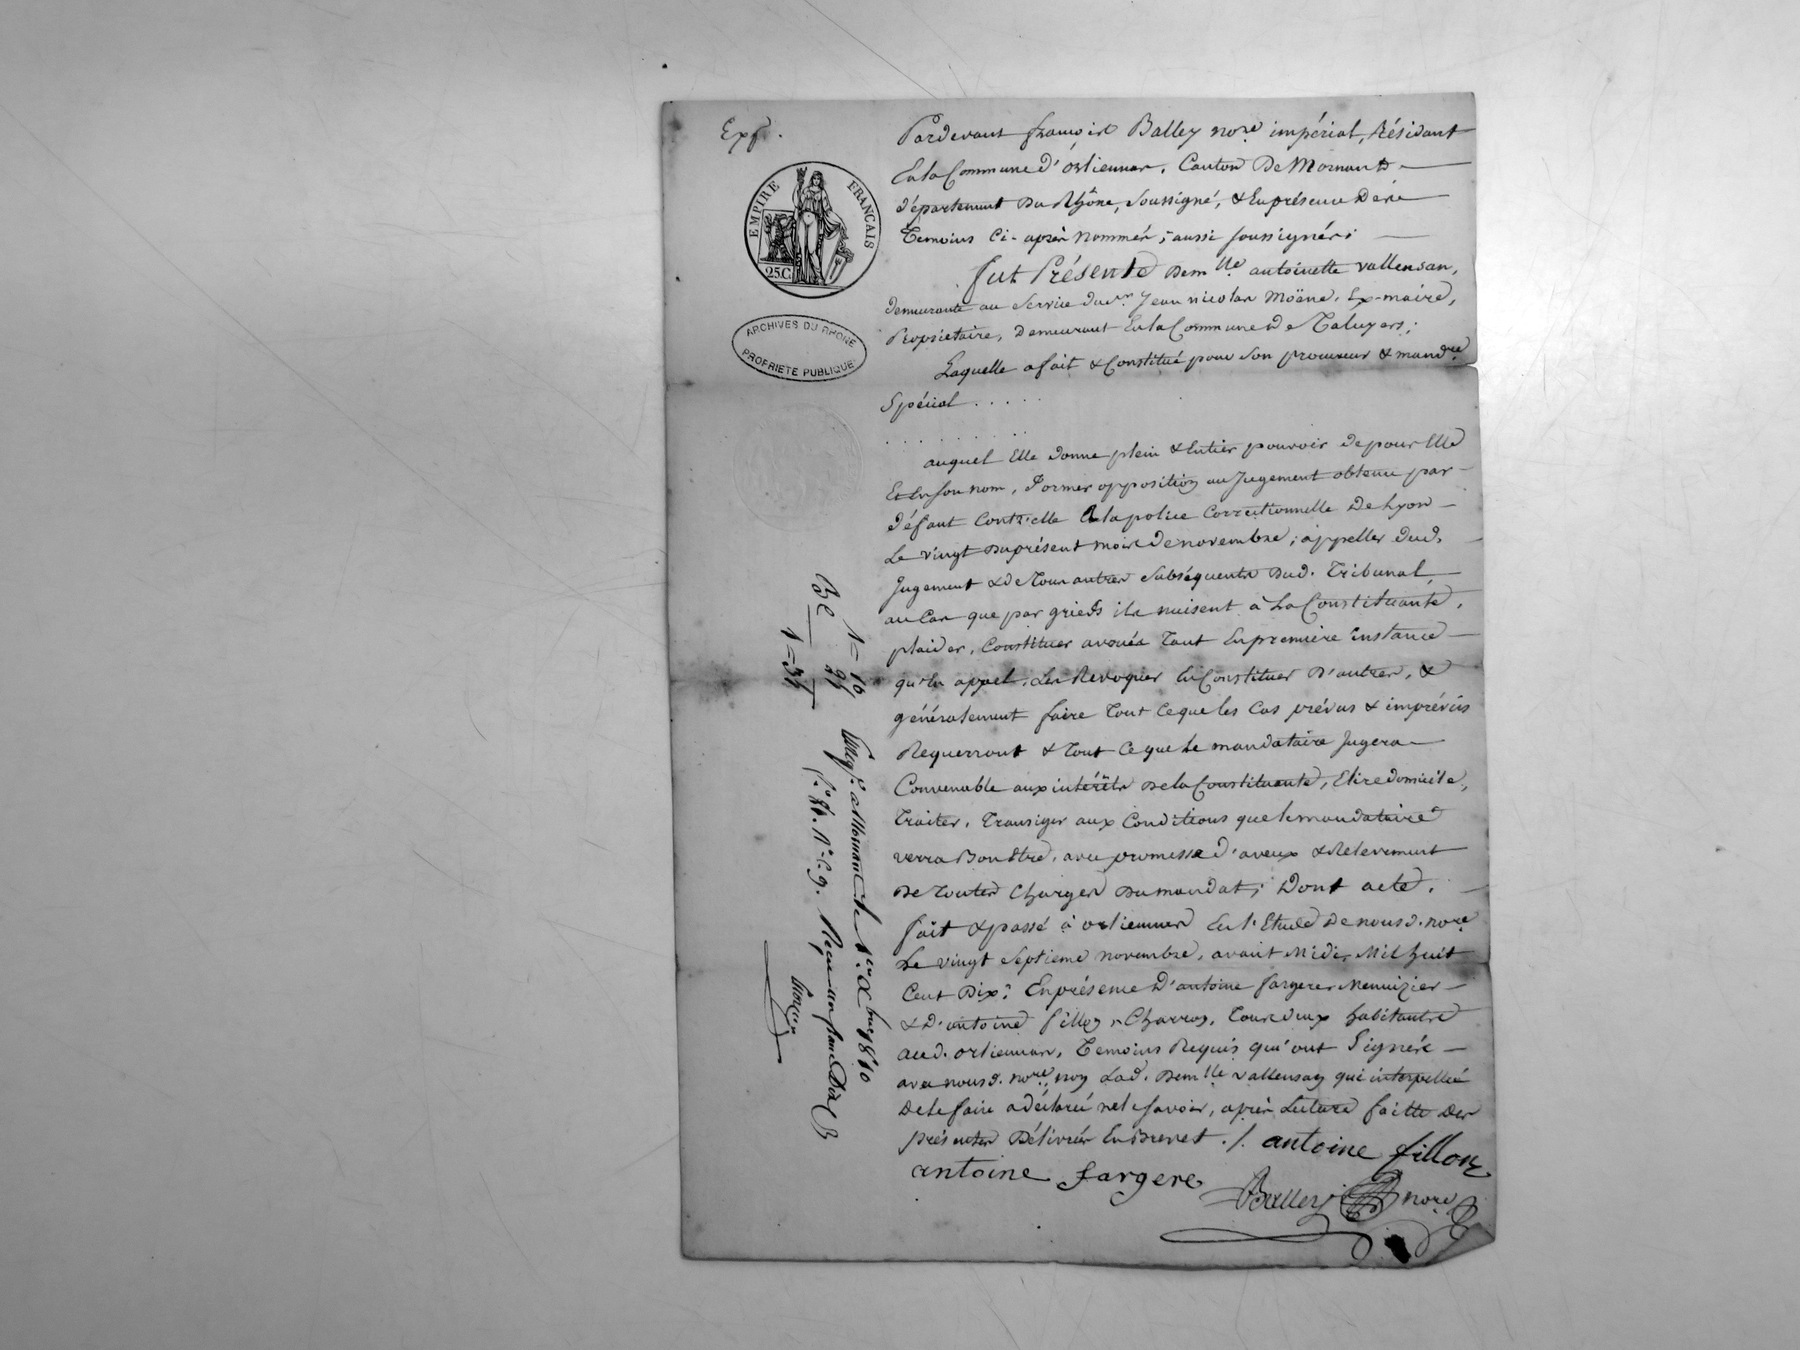 Exp.
EMPIRE FRANÇAIS
25C
ARCHIVES DU RHÔNE
PROPRIETE PUBLIQUE
Pardevant françois Balley nore impérial, Résidant
En la Commune d'orliennas, Canton De Mornant
département Du Rhône, Soussigné, & En présence Des
Temoins Ci-après Nommés, aussi soussignés;
fut Présente Demlle antoinette vallensan,
demeurante au Service du sr Jean nicolas Moäne, Ex-maire,
Propriétaire, Demeurant En la Commune De Taluyers;
Laquelle a fait & Constitué pour Son procureur & mandre
Spécial . . . . .
. . . . . . . . . .
auquel Elle donne plein & Entier pouvoir de pour Elle
Et En son nom, Former opposition au Jugement obtenu par
défaut Contr'elle à la police Correctionnelle De Lyon
Le vingt du présent mois de novembre; appeller dud.
Jugement & de Tous autres Subséquents Dud. Tribunal
au Cas que par griefs ils nuisent à La Constituante,
plaider, Constituer avoués Tant En première instance
qu'En appel, Les Revoquer En Constituer D'autres, &
généralement faire Tout Ce que les Cas prévus & imprévus
Requerront & Tout Ce que Le mandataire Jugera
Convenable aux intérêts De la Constituante, Elire domicile,
Traiter, Transiger aux Conditions que le mandataire
verra Bon être, avec promesse d'aveux & Relevement
De Toutes Charges Du mandat; Dont acte.
fait & passé à orliennas En l'Etude De nous d. nore
Le vingt Septieme novembre, avant Midi, Mil huit
Cent Dix; En présence D'antoine fargere Menuizier
& D'antoine fillon, Charron, Tous deux habitants
aud. orliennas, Temoins Requis qui ont Signés
avec nous d. nore, non Lad. Demlle vallensan qui interpellée
De le faire a déclaré ne le savoir, après Lecture faitte Des
présentes Délivrées En Brevet ./. antoine fillon
antoine fargere
Balley nore
1 = 10
25
1 = 35
Enregt. a Mornant le 1er. Xbre 1810
fo. 81. Ro. C. 9. Reçu un franc Dix C